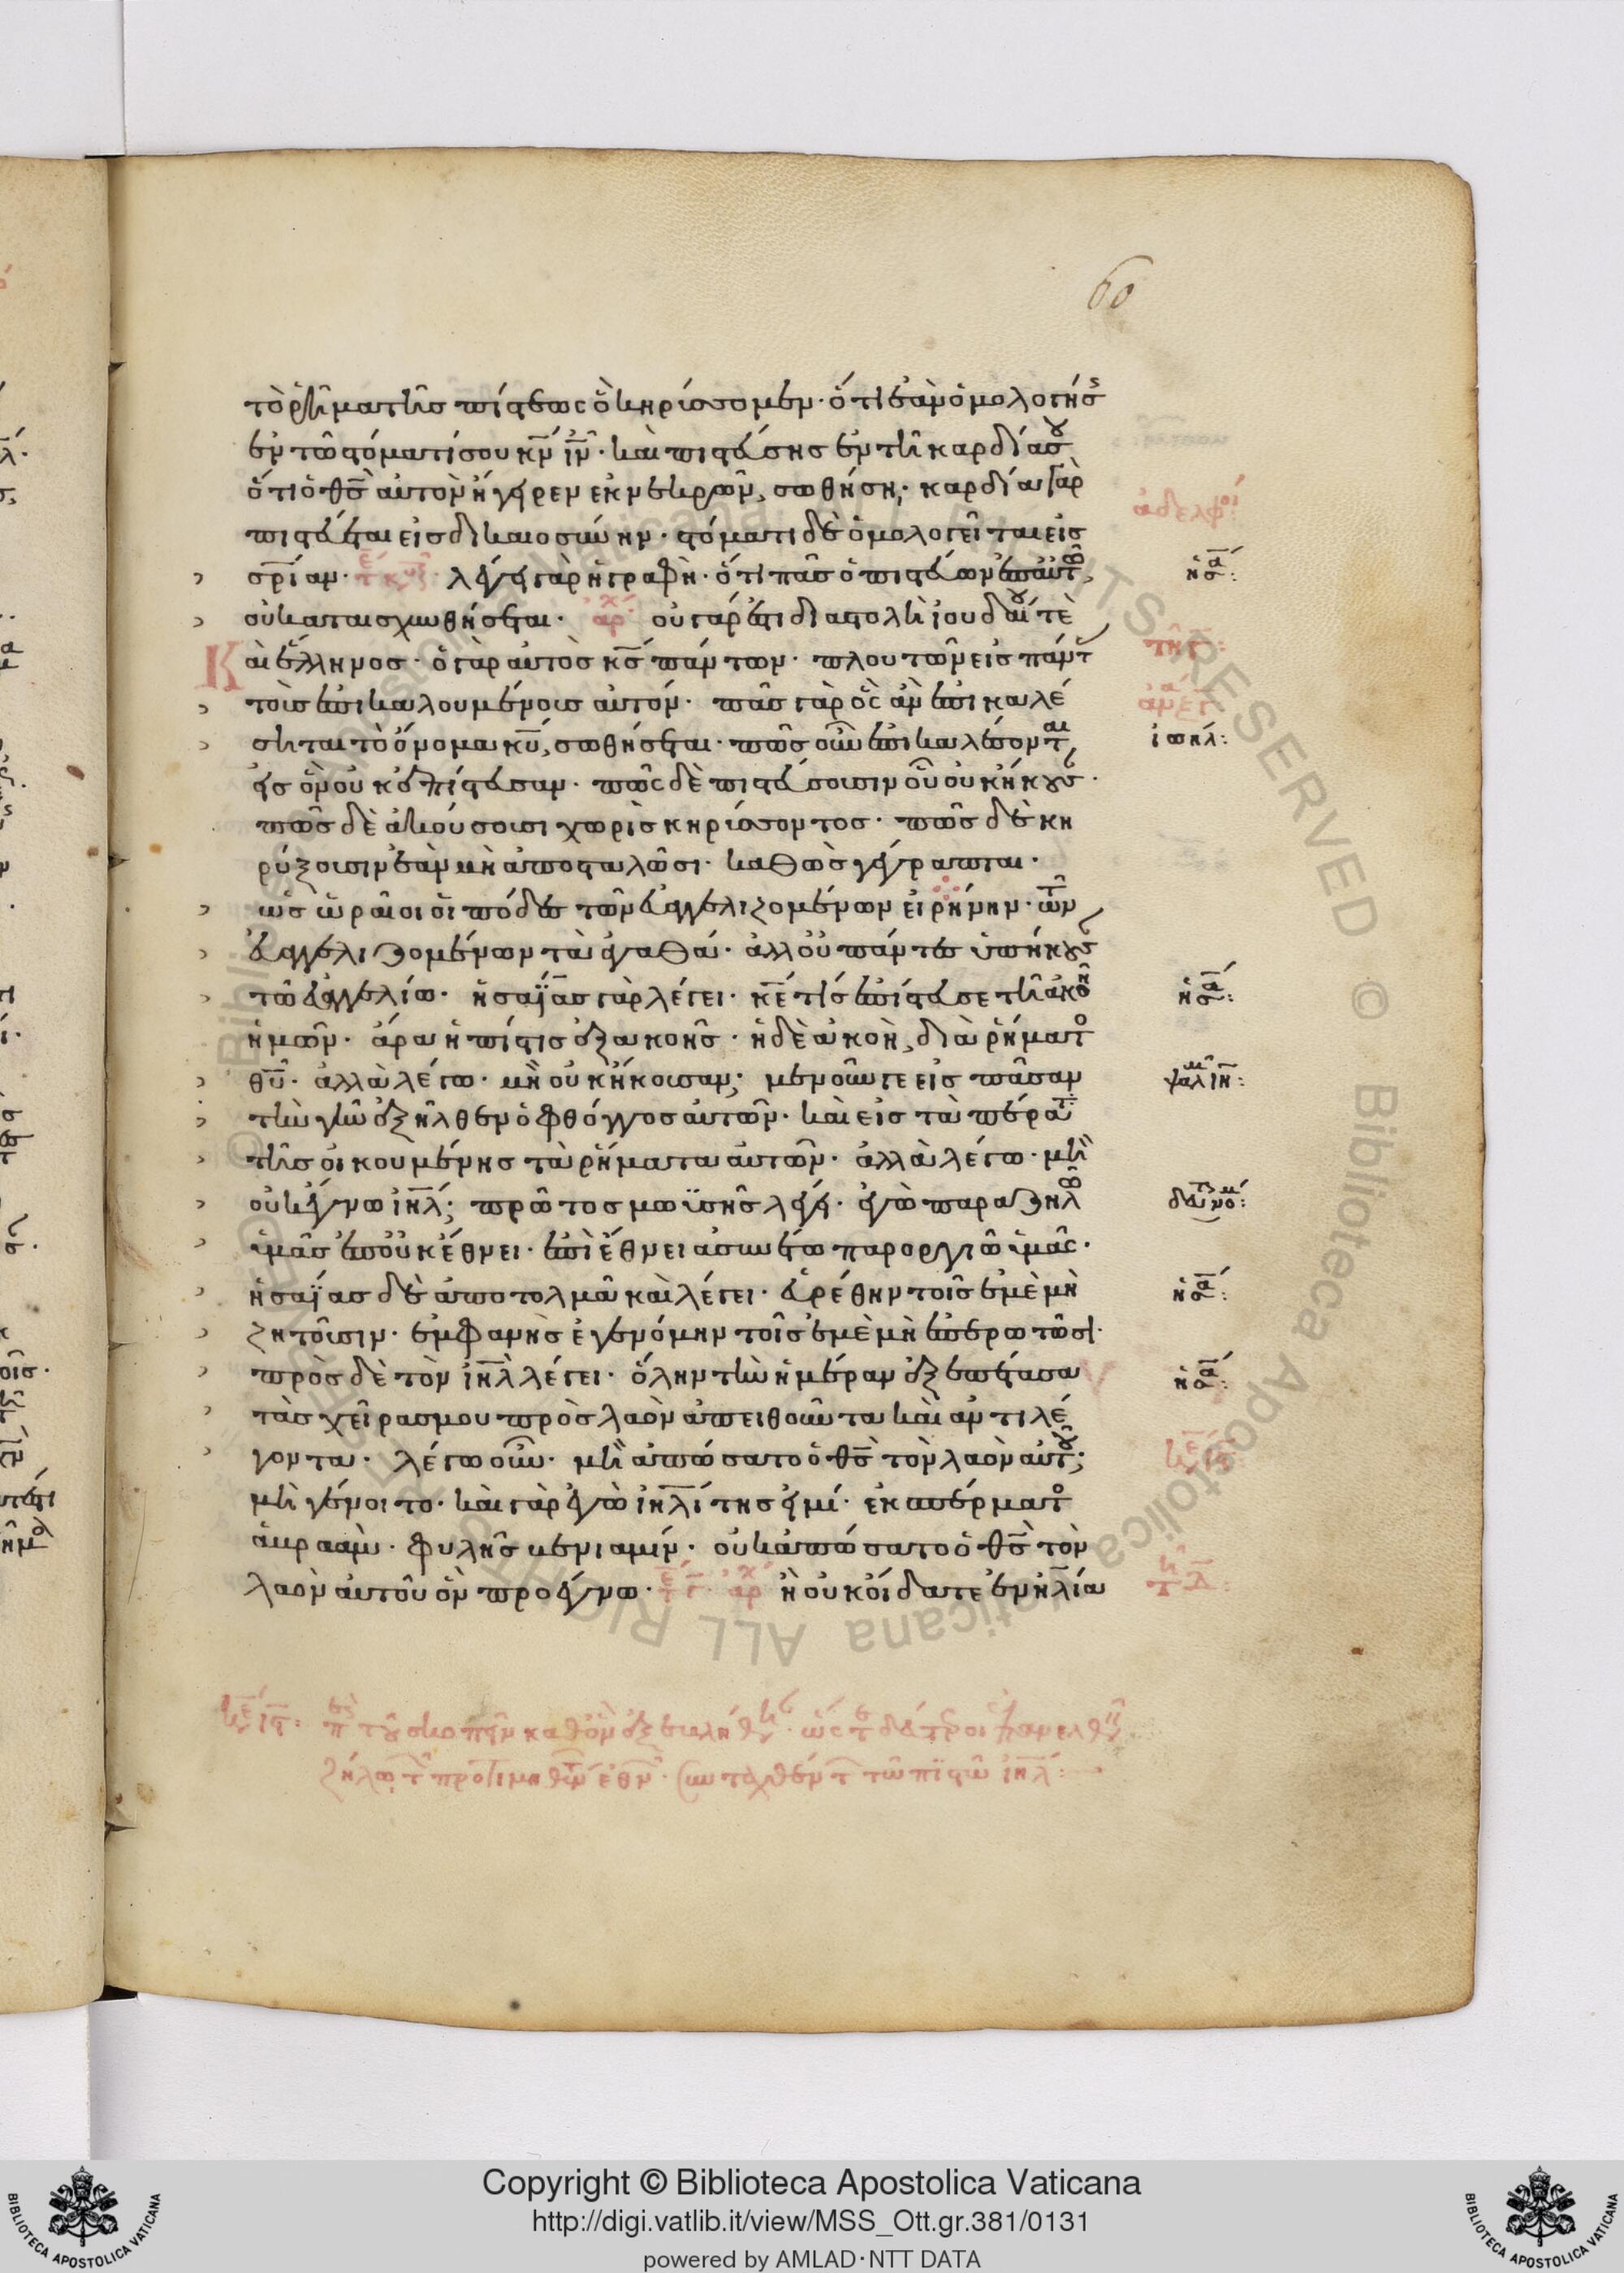 60
τὸ ῥῆμα τῆς πίστεως ὃ κηρύσσομεν· ὅτι ἐὰν ὁμολογήσ
ἐν τῶ στόματί σου κ̅ν ι̅ν· καὶ πιστεύσης ἐν τῆ καρδία σου
ὅτι ὁ θ̅ς αὐτὸν ἤγειρεν ἐκ νεκρῶν, σωθήση· καρδία γὰρ
ἀδελφοί:
πιστεύεται εἰς δικαιοσύνην· στόματι δὲ ὁμολογεῖται εἰς
σ̅ρίαν· λέγει γὰρ ἡ γραφὴ· ὅτι πᾶς ὁ πιστεύων ἐπ αὐτῶ,
ἠσα:
οὐ καταισχυνθήσεται· ἀρχ οὐ γάρ ἐστι διαστολὴ ἰουδαίου τὲ
Καὶ ἕλληνος· ὁ γὰρ αὐτὸς κ̅ς πάντων· πλουτῶν εἰς πάντ
τοὺς ἐπικαλουμένους αὐτόν· πᾶς γὰρ ὃς ἂν ἐπικαλέ
σηται τὸ ὄνομα κ̅υ, σωθήσεται· πῶς οὖν ἐπικαλέσονται
ἰωηλ:
εἰς ὃν οὐκ ἐπίστευσαν· πῶς δὲ πιστεύσουσιν οὗ οὐκ ἤκουσ·
πῶς δὲ ἀκούσουσι χωρὶς κηρύσσοντος· πῶς δὲ κη
ρύξουσιν ἐὰν μὴ ἀποσταλῶσι· καθὼς γέγραπται·
ὡς ὡραῖοι οἱ πόδες τῶν εὐαγγελιζομένων εἰρήνην· τῶν
εὐαγγελιζομένων τὰ ἀγαθά· ἀλλ οὐ πάντες ὑπήκουσ
τῶ εὐαγγελίω· ἠσαΐας γὰρ λέγει· κ̅ε τίς ἐπίστευσε τῆ ἀκοῆ
ἠσα:
ἡμῶν· ἄρα ἡ πίστις ἐξ ἀκοῆς· ἡ δὲ ἀκοὴ, διὰ ῥήματο
θ̅υ· ἀλλὰ λέγω· μὴ οὐκ ἤκουσαν; μενοῦνγε εἰς πᾶσαν
ψαλ ιη:
τὴν γῆν ἐξῆλθεν ὁ φθόγγος αὐτῶν· καὶ εἰς τὰ πέρατ
τῆς οἰκουμένης τὰ ῥήματα αὐτῶν· ἀλλὰ λέγω· μὴ
οὐκ ἔγνω ἰη̅λ; πρῶτος μωϋσῆς λέγει· ἐγὼ παραζηλῶ
δευτνο:
ὑμᾶς ἐπ οὐκ ἔθνει· ἐπὶ ἔθνει ἀσυνέτω παροργιῶ ὑμᾶς·
ἠσαΐας δὲ ἀποτολμᾶ καὶ λέγει· εὑρέθην τοῖς ἐμὲ μὴ
ἠσα:
ζητοῦσιν· ἐμφανὴς ἐγενόμην τοῖς ἐμὲ μὴ ἐπερωτῶσι·
πρὸς δὲ τὸν ἰη̅λ λέγει· ὅλην τὴν ἡμέραν ἐξεπέτασα
ἠσα:
τὰς χεῖρας μου πρὸς λαὸν ἀπειθοῦντα καὶ ἀντιλέ
γοντα· λέγω οὖν· μὴ ἀπώσατο ὁ θ̅ς τὸν λαὸν αὐτοῦ;
μὴ γένοιτο· καὶ γὰρ ἐγὼ ἰη̅λίτης εἰμί· ἐκ σπέρματο
ἀβραάμ· φυλῆς βενιαμίν· οὐκ ἀπώσατο ὁ θ̅ς τὸν
λαὸν αὐτοῦ ὃν προέγνω· ἀρχ ἢ οὐκ οἴδατε ἐν ἠλία
Copyright © Biblioteca Apostolica Vaticana
http://digi.vatlib.it/view/MSS_Ott.gr.381/0131
powered by AMLAD·NTT DATA
BIBLIOTECA APOSTOLICA VATICANA
BIBLIOTECA APOSTOLICA VATICANA